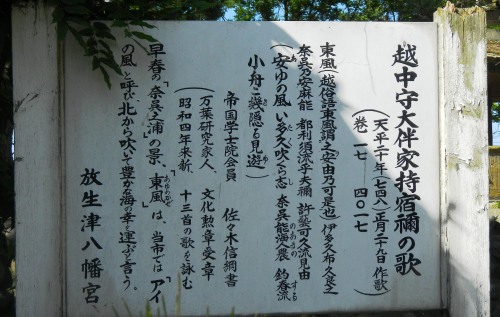 越中守大伴家持宿禰の歌
(天平二十年(七四八)正月二十九日 作歌)
(巻一七 四〇一七)
東風(越俗語東風謂之安由乃可是也)伊多久布久良之
奈呉乃安麻能 都利須流乎夫禰 許藝可久流見由
(安ゆの風 い多久吹くら志 奈呉能海人農 釣春流
小舟こ幾隠る見遊)
帝国学士院会員 佐々木信綱書
(万葉研究家、歌人、 文化勲章受章
昭和四年来新、 十三首の歌を詠む
早春の「奈呉之浦の景、「東風」は、当市では「アイ
の風」と呼び、北から吹いて豊かな海の幸を運ぶと言う。
放生津八幡宮